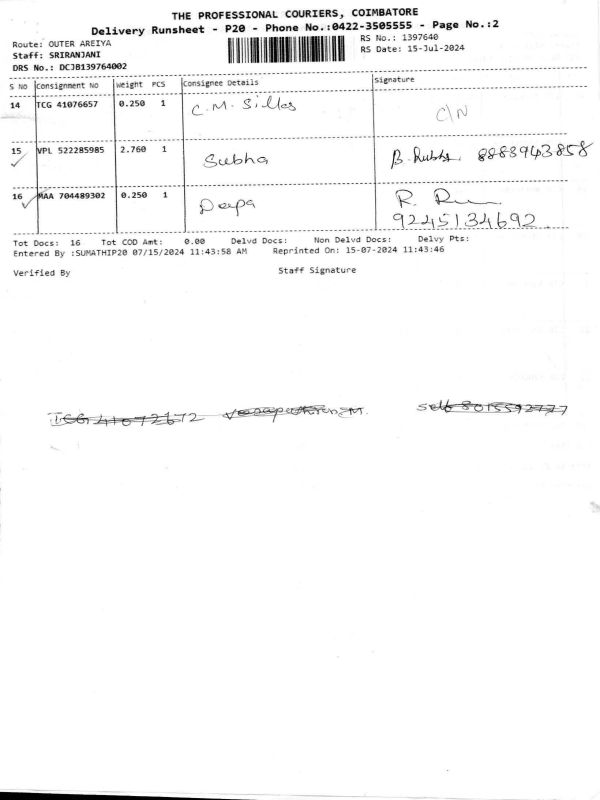 THE PROFESSIONAL COURIERS, COIMBATORE
Delivery Runsheet - P20 - Phone No.:0422-3505555 - Page No.:2
Route: OUTER AREIYA
RS No.: 1397640
Staff: SRIRANJANI
RS Date: 15-Jul-2024
DRS No.: DCJB139764002
S NO Consignment No Weight PCS Consignee Details Signature
14 TCG 41076657 0.250 1 C.M. Silks C/N
15 VPL 522285985 2.760 1 Subha B. 8883943858
16 MAA 704489302 0.250 1 Deepa R. 9245134692
Tot Docs: 16 Tot COD Amt: 0.00 Delvd Docs: Non Delvd Docs: Delvy Pts:
Entered By :SUMATHIP20 07/15/2024 11:43:58 AM Reprinted On: 15-07-2024 11:43:46
Verified By Staff Signature
TCG 41072672 M. Self 8015592777